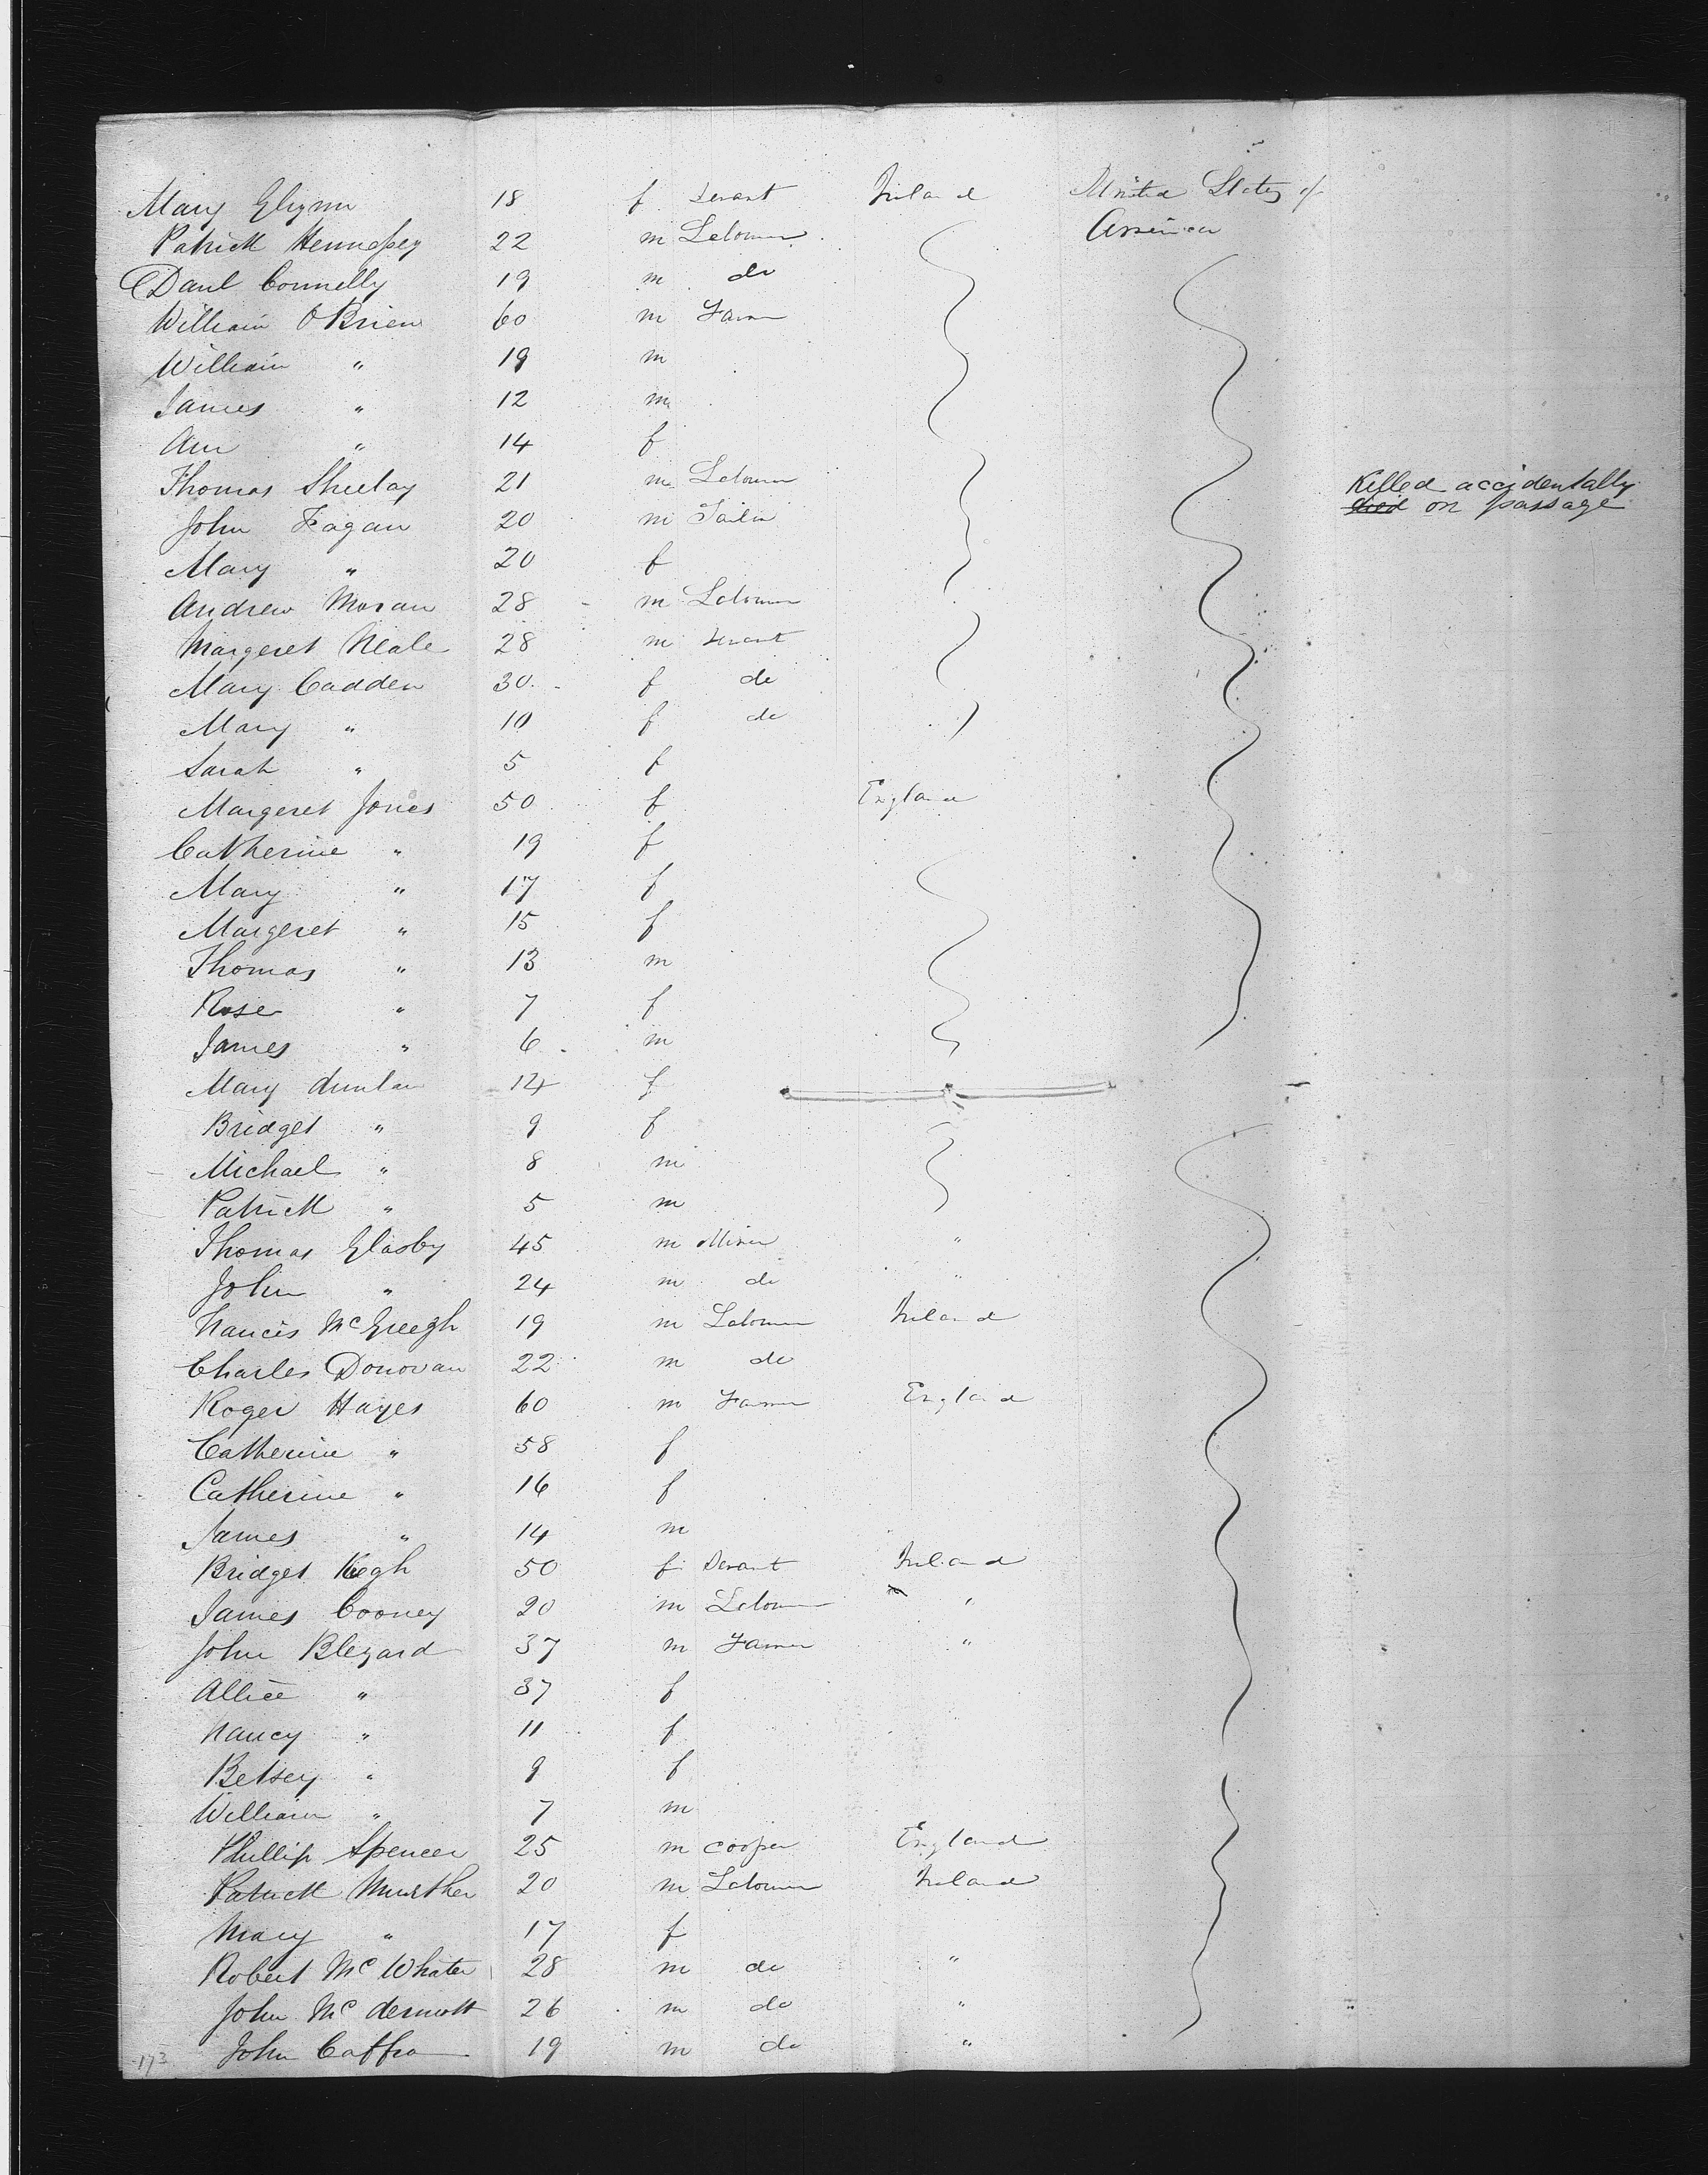 Mary Glynn 18 f Servant Ireland United States of
America
Patrick Hennessey 22 m Labourer
Danl Connelly 19 m do
William O'Brien 60 m Farmer
William " 19 m
James " 12 m
Ann " 14 f
Thomas Sheelay 21 m Labourer Killed accidentally
died on passage
John Fagan 20 m Tailor
Mary " 20 f
Andrew Moran 28 m Labourer
Margeret Neale 28 m Servant
Mary Cadden 30 f do
Mary " 10 f do
Sarah " 5 f
Margeret Jones 50 f England
Catherine " 19 f
Mary " 17 f
Margeret " 15 f
Thomas " 13 m
Rose " 7 f
James " 6 m
Mary dunlan 14 f
Bridget " 9 f
Michael " 8 m
Patrick " 5 m
Thomas Glasby 45 m Miner "
John " 24 m do "
Francis McGreegh 19 m Labourer Ireland
Charles Donovan 22 m do
Roger Hayes 60 m Farmer England
Catherine " 58 f
Catherine " 16 f
James " 14 m
Bridget Kegh 50 f Servant Ireland
James Cooney 20 m Labourer "
John Blezard 37 m Farmer "
Allice " 37 f
Nancy " 11 f
Betsey " 9 f
William " 7 m
Phillip Spencer 25 m Cooper England
Patrick Murther 20 m Labourer Ireland
Mary " 17 f
Robert McWhater 28 m do "
John McDermott 26 m do "
John Caffra 19 m do "
173